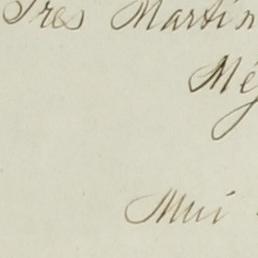 Sres Martin
Mé
Mui